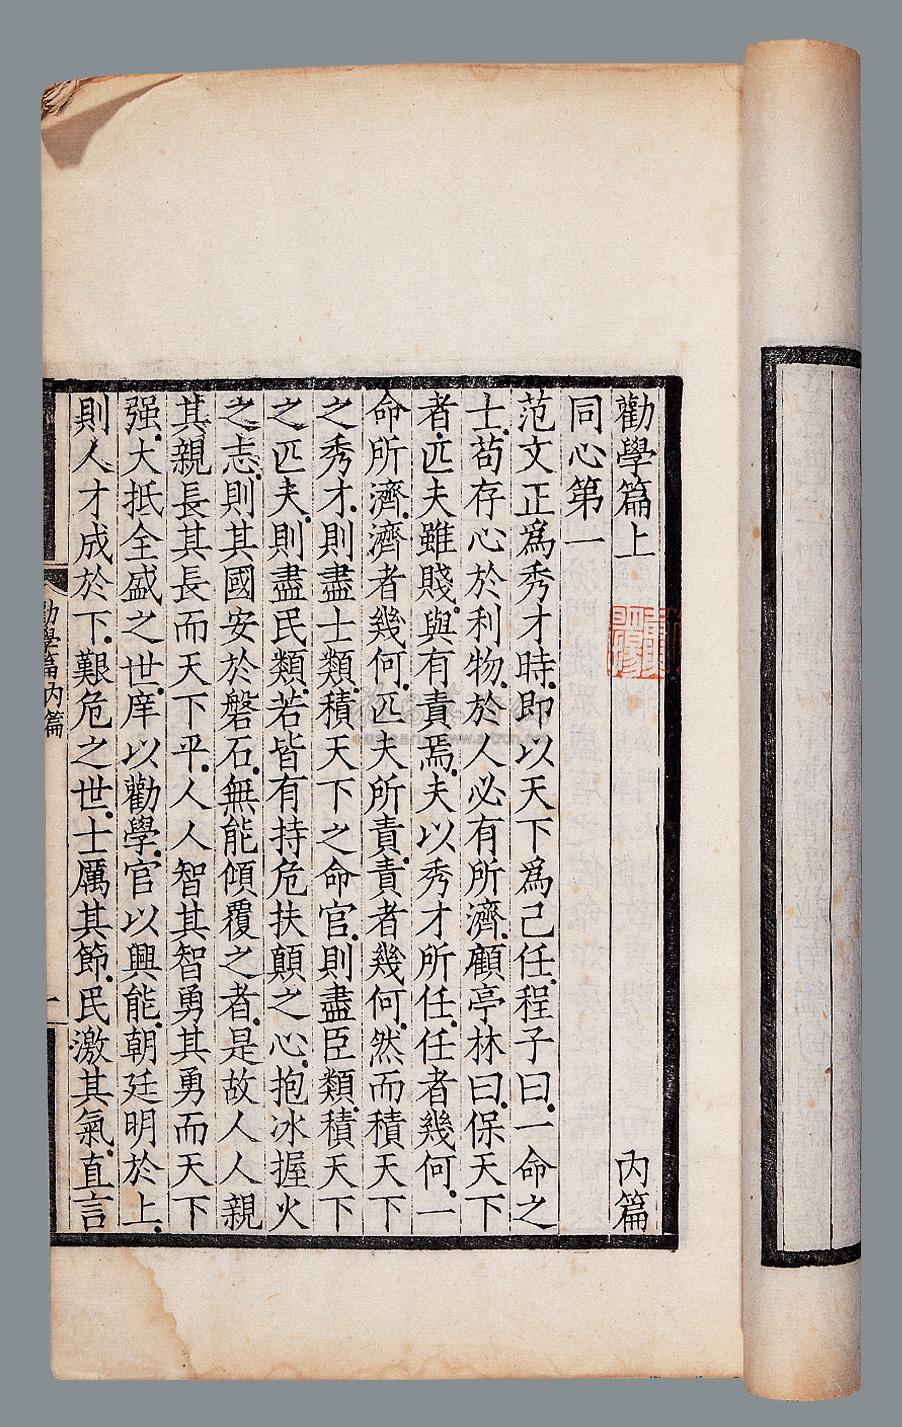 勸學篇上　內篇
同心第一
范文正爲秀才時.卽以天下爲己任.程子曰.一命之
士.苟存心於利物.於人必有所濟.顧亭林曰.保天下
者.匹夫雖賤.與有責焉.夫以秀才所任.任者幾何.一
命所濟.濟者幾何.匹夫所責.責者幾何.然而積天下
之秀才.則盡士類.積天下之命官.則盡臣類.積天下
之匹夫.則盡民類.若皆有持危扶顛之心.抱冰握火
之志.則其國安於磐石.無能傾覆之者.是故人人親
其親長其長而天下平.人人智其智勇其勇而天下
强.大抵全盛之世.庠以勸學.官以興能.朝廷明於上.
則人才成於下.艱危之世.士厲其節.民激其氣.直言
勸學篇內篇
一